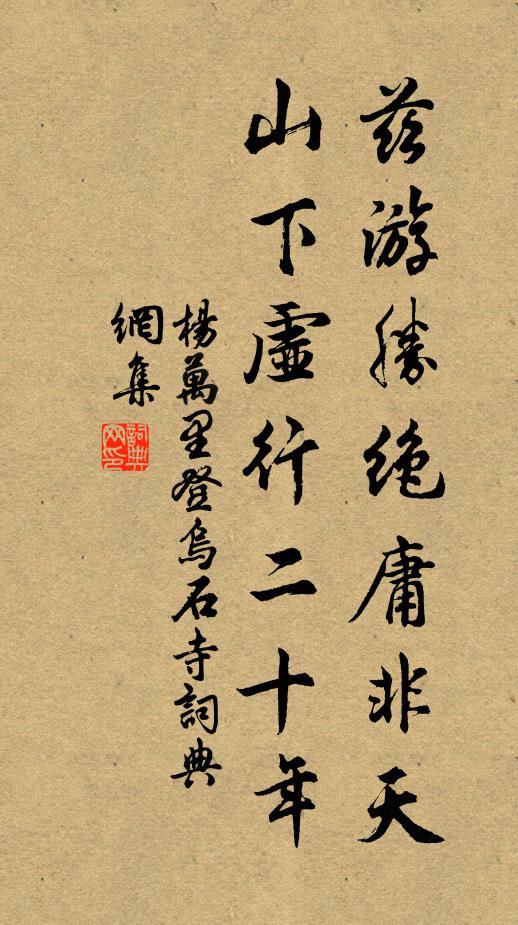 茲游勝絶庸非天
山下虛行二十年
楊萬里登烏石寺詞典
網集
詞典
网印